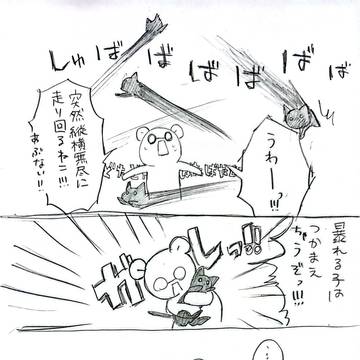 しゅばばばばばば
うわーっ!!!
突然縦横無尽に
走り回るねこ!!!
あぶない!!
暴れる子は
つかまえ
ちゃうぞっ!!!
ガシーッ!!
…